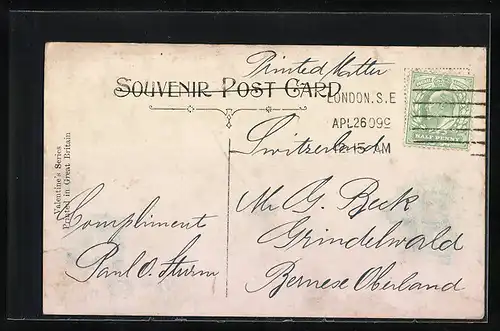 Printed Matter
SOUVENIR POST CARD
LONDON.S.E
APL 26 09
12.15 AM
HALF PENNY
Switzerland
Valentine's Series
Printed in Great Britain
Compliment
Paul O. Sturm
Mr G. Beck
Grindelwald
Bernese Oberland